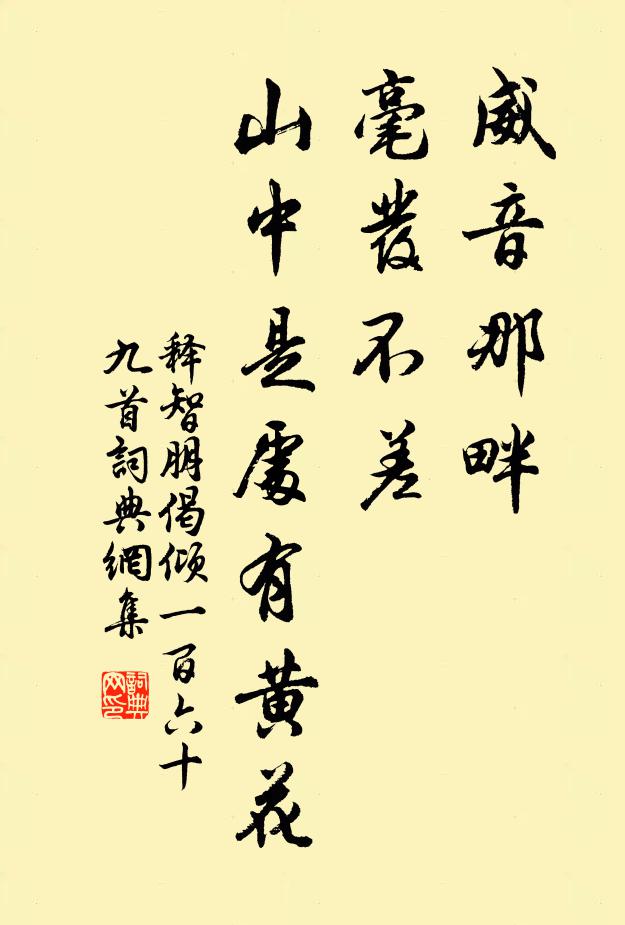 威音那畔
毫發不差
山中是處有黄花
释智朋偈傾一百六十
九首詞典網集
詞典網印